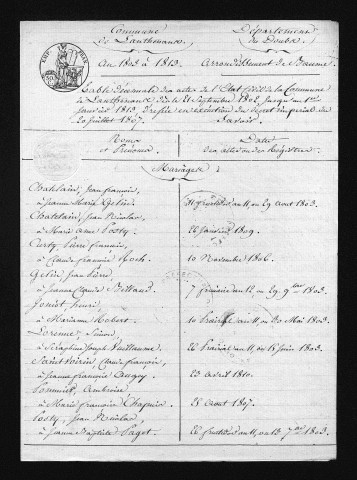 Commune
de Lanthenans
Département
du Doubs
An 1803 à 1813
Arrondissement de Baume
Table décennale des actes de l'Etat civil de la Commune
de Lanthenans dès le 21 Septembre 1802 jusqu'au 1er
janvier 1813 dressée en exécution du Décret impérial du
20 juillet 1807. Savoir.
Noms
et Prénoms
Dates
des actes ou des Registres
Mariages
Chatelain, Jean françois,
à Jeanne Marie Gelin. 11 fructidor an 11, ou 29 aout 1803.
Chatelain, Jean Nicolas,
à Marie Anne Posty. 26 janvier 1809.
Pierre françois,
à Claude françoise 10 novembre 1806.
Gelin Jean Pierre
à Jeanne Claude Billaud. 7 frimaire an 12 ou 29 9bre 1803.
henri
à Marianne 10 Prairial an 11, ou 30 Mai 1803.
Simon
à Séraphine Joseph Vuillaume. 26 Prairial an 11, ou 15 juin 1803.
Saint Voirin, Claude françois,
à Jeanne françoise 23 avril 1810.
Pommier, Ambroise
à Marie françoise Chapuis. 25 aout 1807.
Posty, Jean Nicolas,
à Jeanne Baptiste Paget. 26 fructidor an 11, ou 13 7bre 1803.